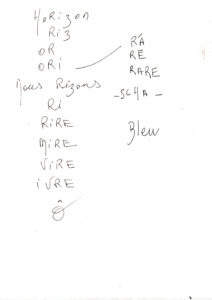 HORIZON
RIZ
OR
ORI
Nous Rizons
RI
RiRE
MiRE
ViRE
iVRE
Ô
RÂ
RE
RARE
-SCHA-
Bleu